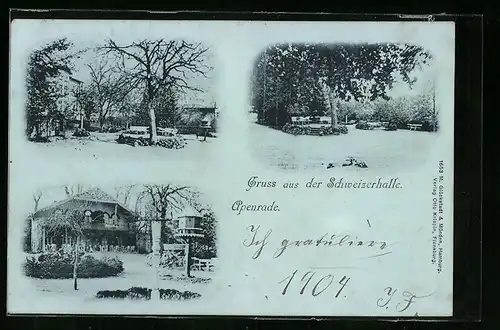 Gruss aus der Schweizerhalle.
Apenrade.
Ich gratuliere
1904. J.F.
1658 M. Glückstadt & Münden, Hamburg.
Verlag Otto